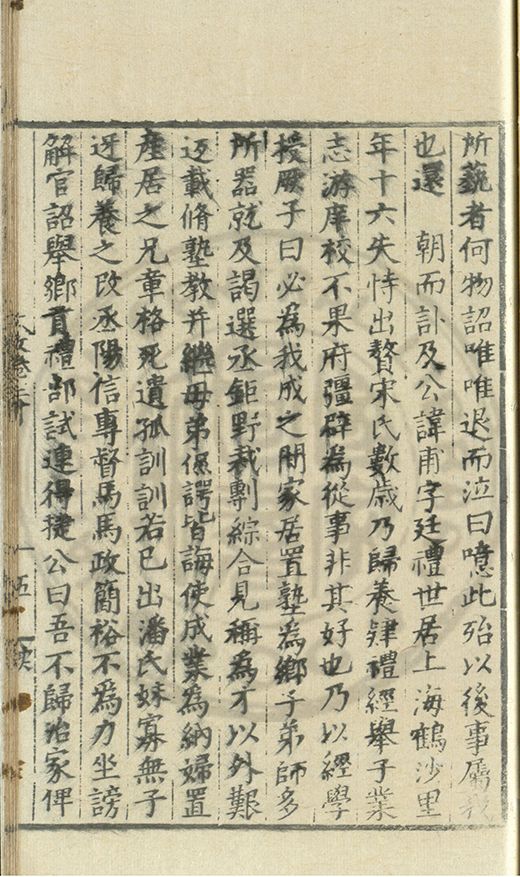 所藐者何物詔唯唯退而泣曰噫此殆以後事屬我
也還　朝而訃及公諱甫字廷禮世居上海鶴沙里
年十六失恃出贅宋氏數歲乃歸養肄禮經舉子業
志游庠校不果府彊辟為從事非其好也乃以經學
授厥子曰必為我成之閒家居置塾為鄉子弟師多
所器就及謁選丞鉅野裁剸綜合見稱為才以外艱
还載脩塾教并繼母弟保諤皆誨使成業為納婦置
產居之兄章格死遺孤訓訓若已出潘氏妹寡無子
迓歸養之改丞陽信專督馬馬政簡裕不為力坐謗
解官詔舉鄉貢禮部試連得捷公曰吾不歸治家俾